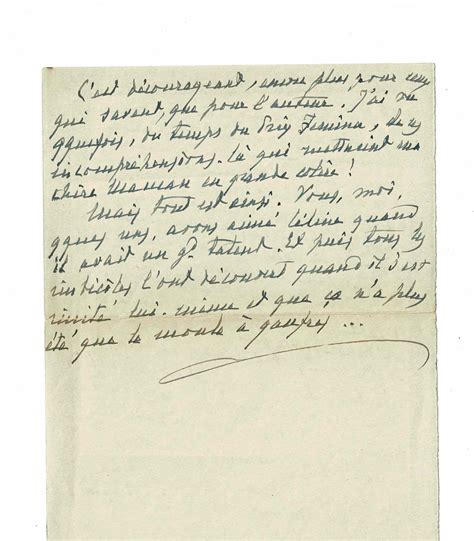 C'est décourageant, encore plus pour ceux
qui savent, que pour l'auteur. J'ai vu
qquefois, du temps du Prix Femina, de ces
incompréhensions là qui mettaient ma
chère Maman en grande colère !
Mais tout est ainsi. Vous, moi,
qques uns, avons aimé Céline quand
il avait un gd talent. Et puis tous les
imbéciles l'ont découvert quand il s'est
imité lui-même et que ça n'a plus
été que le moule à gaufres ...